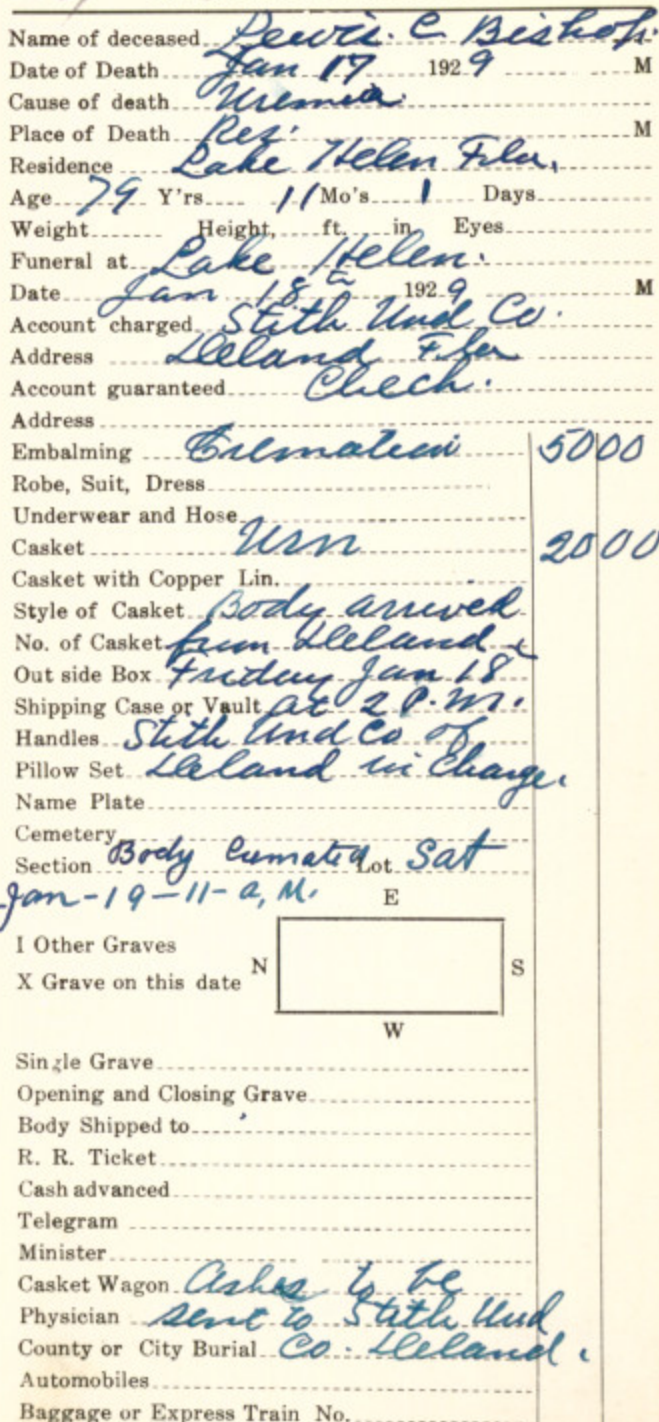 Name of deceased Lewis. C Bishop.
Date of Death Jan 17 1929 M
Cause of death Uremia.
Place of Death Res. M
Residence Lake Helen Fla.
Age 79 Y'rs 11 Mo's 1 Days
Weight Height, ft. in Eyes
Funeral at Lake Helen.
Date Jan 18th 1929 M
Account charged Stith Und Co.
Address Deland Fla
Account guaranteed Check.
Address
Embalming Cremation 50 00
Robe, Suit, Dress
Underwear and Hose
Casket Urn 20 00
Casket with Copper Lin.
Style of Casket Body arrived
No. of Casket from Deland
Out side Box Friday Jan 18
Shipping Case or Vault at 2 P.M.
Handles Stith Und Co of
Pillow Set Deland in Charge.
Name Plate
Cemetery
Section Body Cremated Lot Sat
Jan-19-11-a, M.
E
I Other Graves
X Grave on this date N S
W
Single Grave
Opening and Closing Grave
Body Shipped to
R. R. Ticket
Cash advanced
Telegram
Minister
Casket Wagon Ashes to be
Physician sent to Stith Und
County or City Burial Co. Deland.
Automobiles
Baggage or Express Train No.